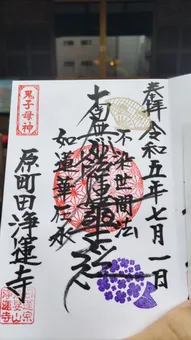 奉拝 令和五年七月一日
不染世間法
南無妙法蓮華経
如蓮華在水
鬼子母神
原町田 浄運寺